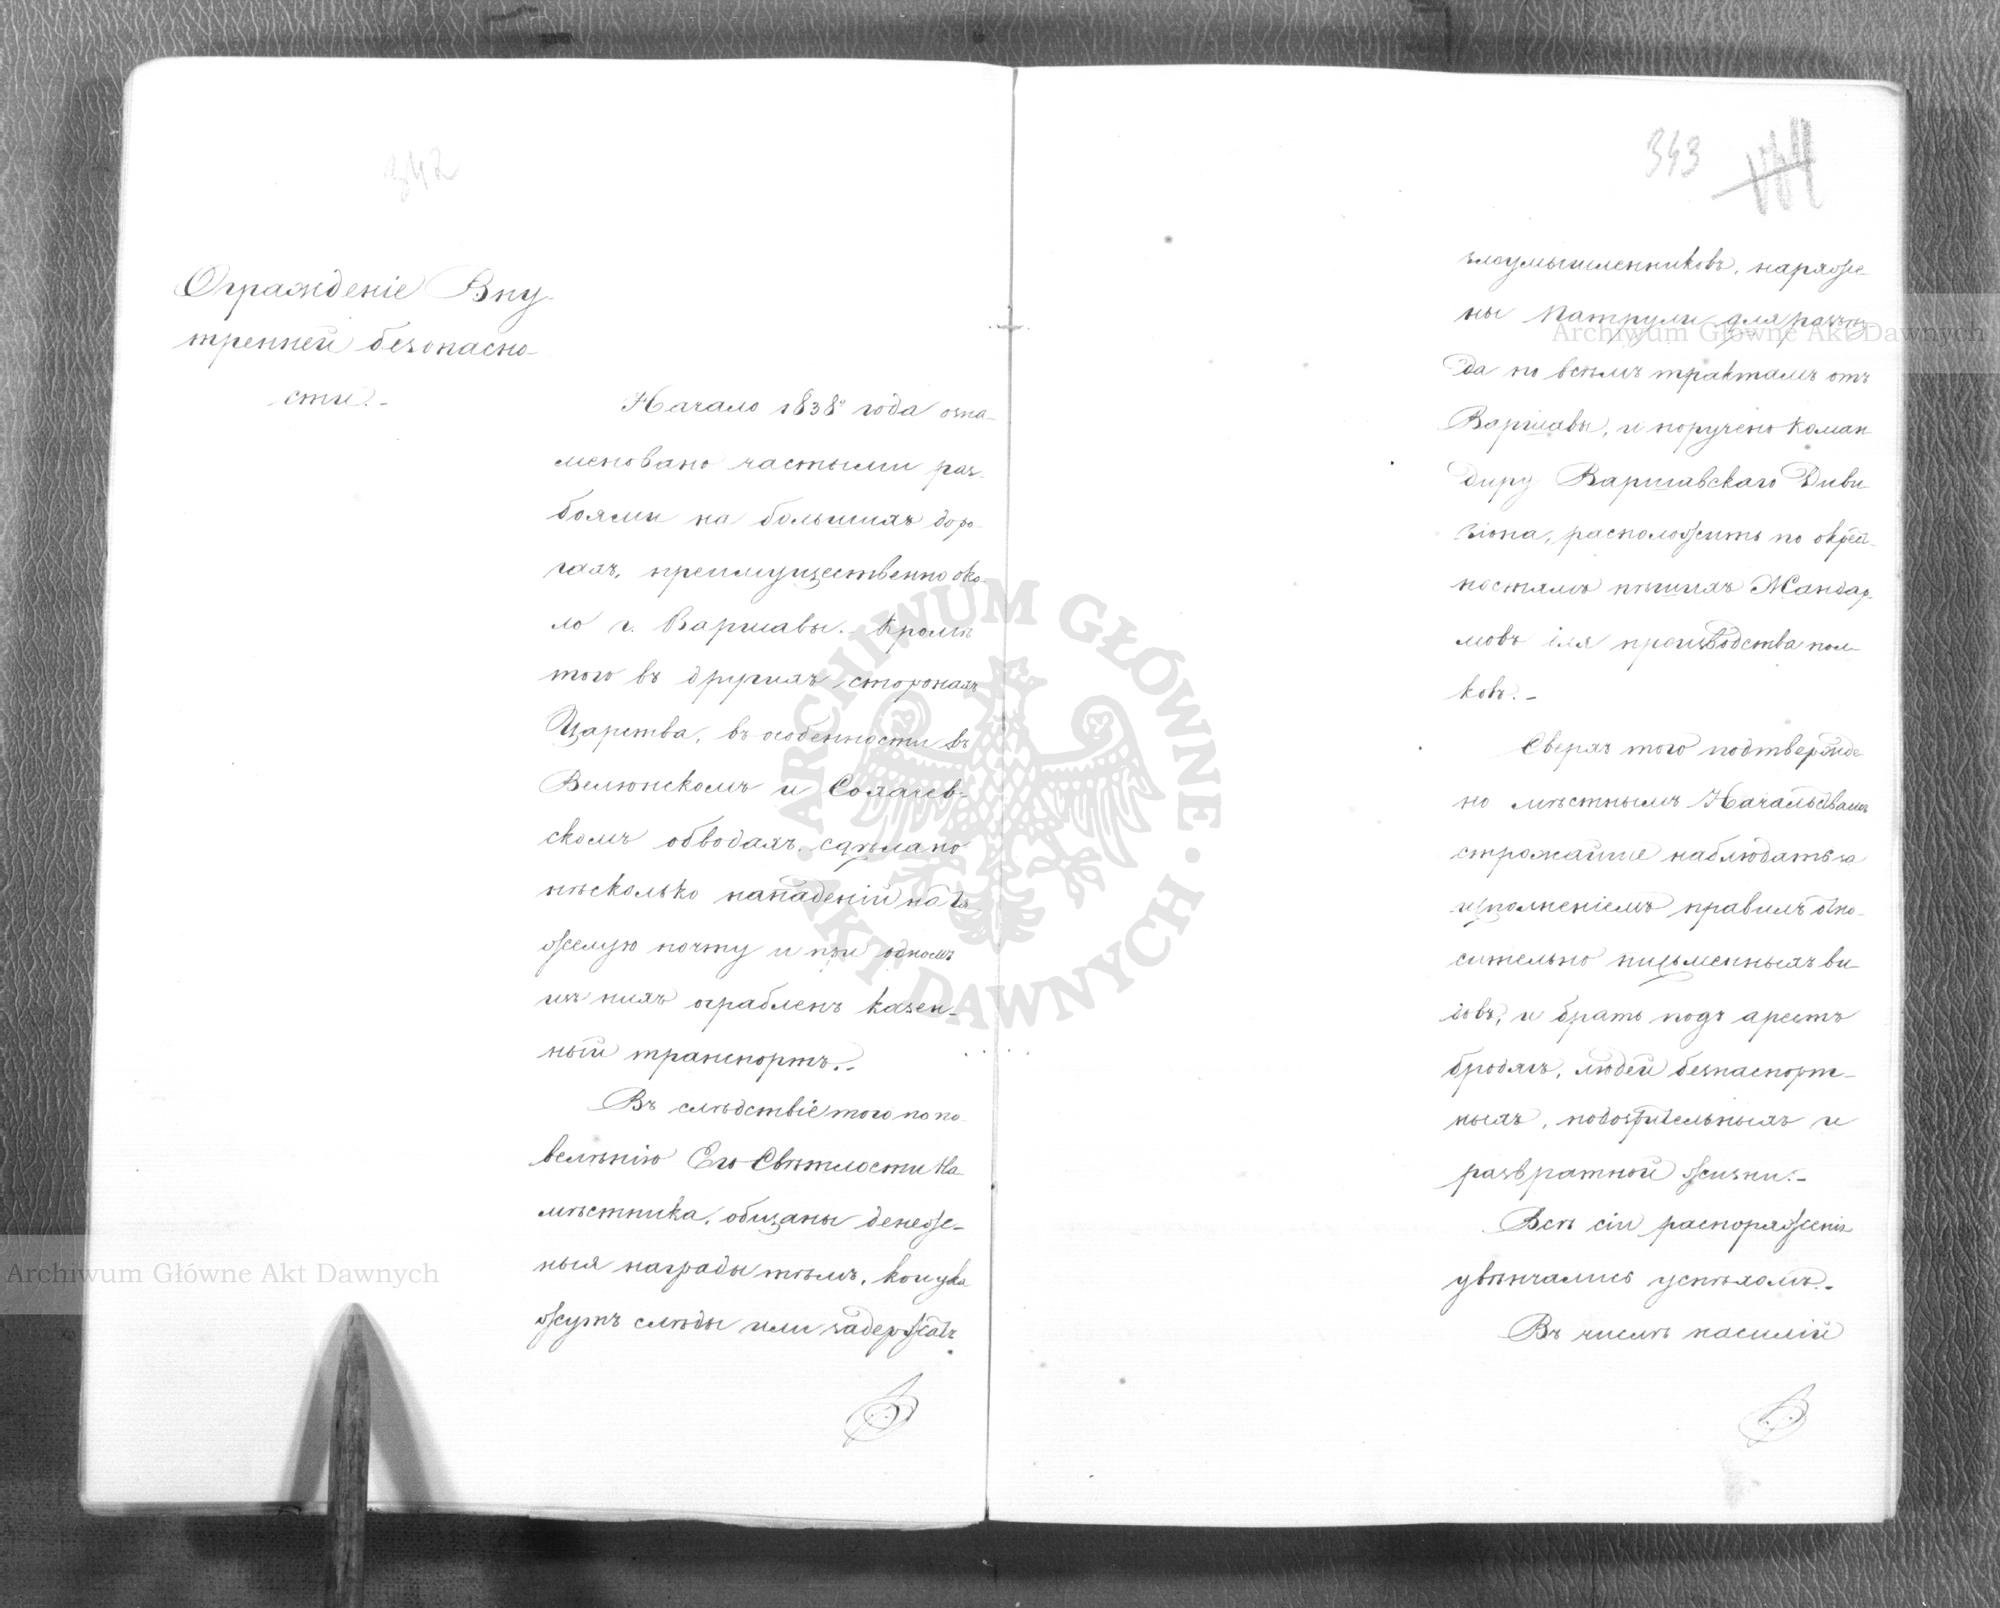 342
Огражденіе Вну-
тренней безопасно-
сти.-
Начало 1838º года озна-
меновано частыми раз-
боями на большихъ доро-
гахъ, преимущественно око-
ло г. Варшавы.- Кромѣ
того въ другихъ сторонахъ
Царства, въ особенности въ
Велюнскомъ и Сохачев-
скомъ обводахъ, сдѣлано
нѣсколько нападеній на тя-
желую почту и при одномъ
изъ нихъ ограбленъ казен-
ный транспортъ.-
Въ слѣдствіе того по по-
велѣнію Его Свѣтлости На-
мѣстника, обѣщаны денеж-
ныя награды тѣмъ, кои ука
жутъ слѣды или задержатъ
343
злоумышленниковъ, наряже
ны патрули для разъѣз-
да по всѣмъ трактамъ отъ
Варшавы, и поручено Коман
диру Варшавскаго Диви
зіона, расположить по окрест-
ностямъ пѣшихъ Жандар-
мовъ для производства поис-
ковъ.-
Сверхъ того подтвержде
но мѣстнымъ Начальствамъ
строжайше наблюдать за
исполненіемъ правилъ отно-
сительно письменныхъ ви
довъ, и брать подъ арестъ
бродягъ, людей безпаспорт-
ныхъ, подозрительныхъ и
развратной жизни.-
Всѣ сіи распоряженія
увѣнчались успѣхомъ.-
Въ числѣ насилій
ARCHIWUM GŁÓWNE AKT DAWNYCH
Archiwum Główne Akt Dawnych
Archiwum Główne Akt Dawnych